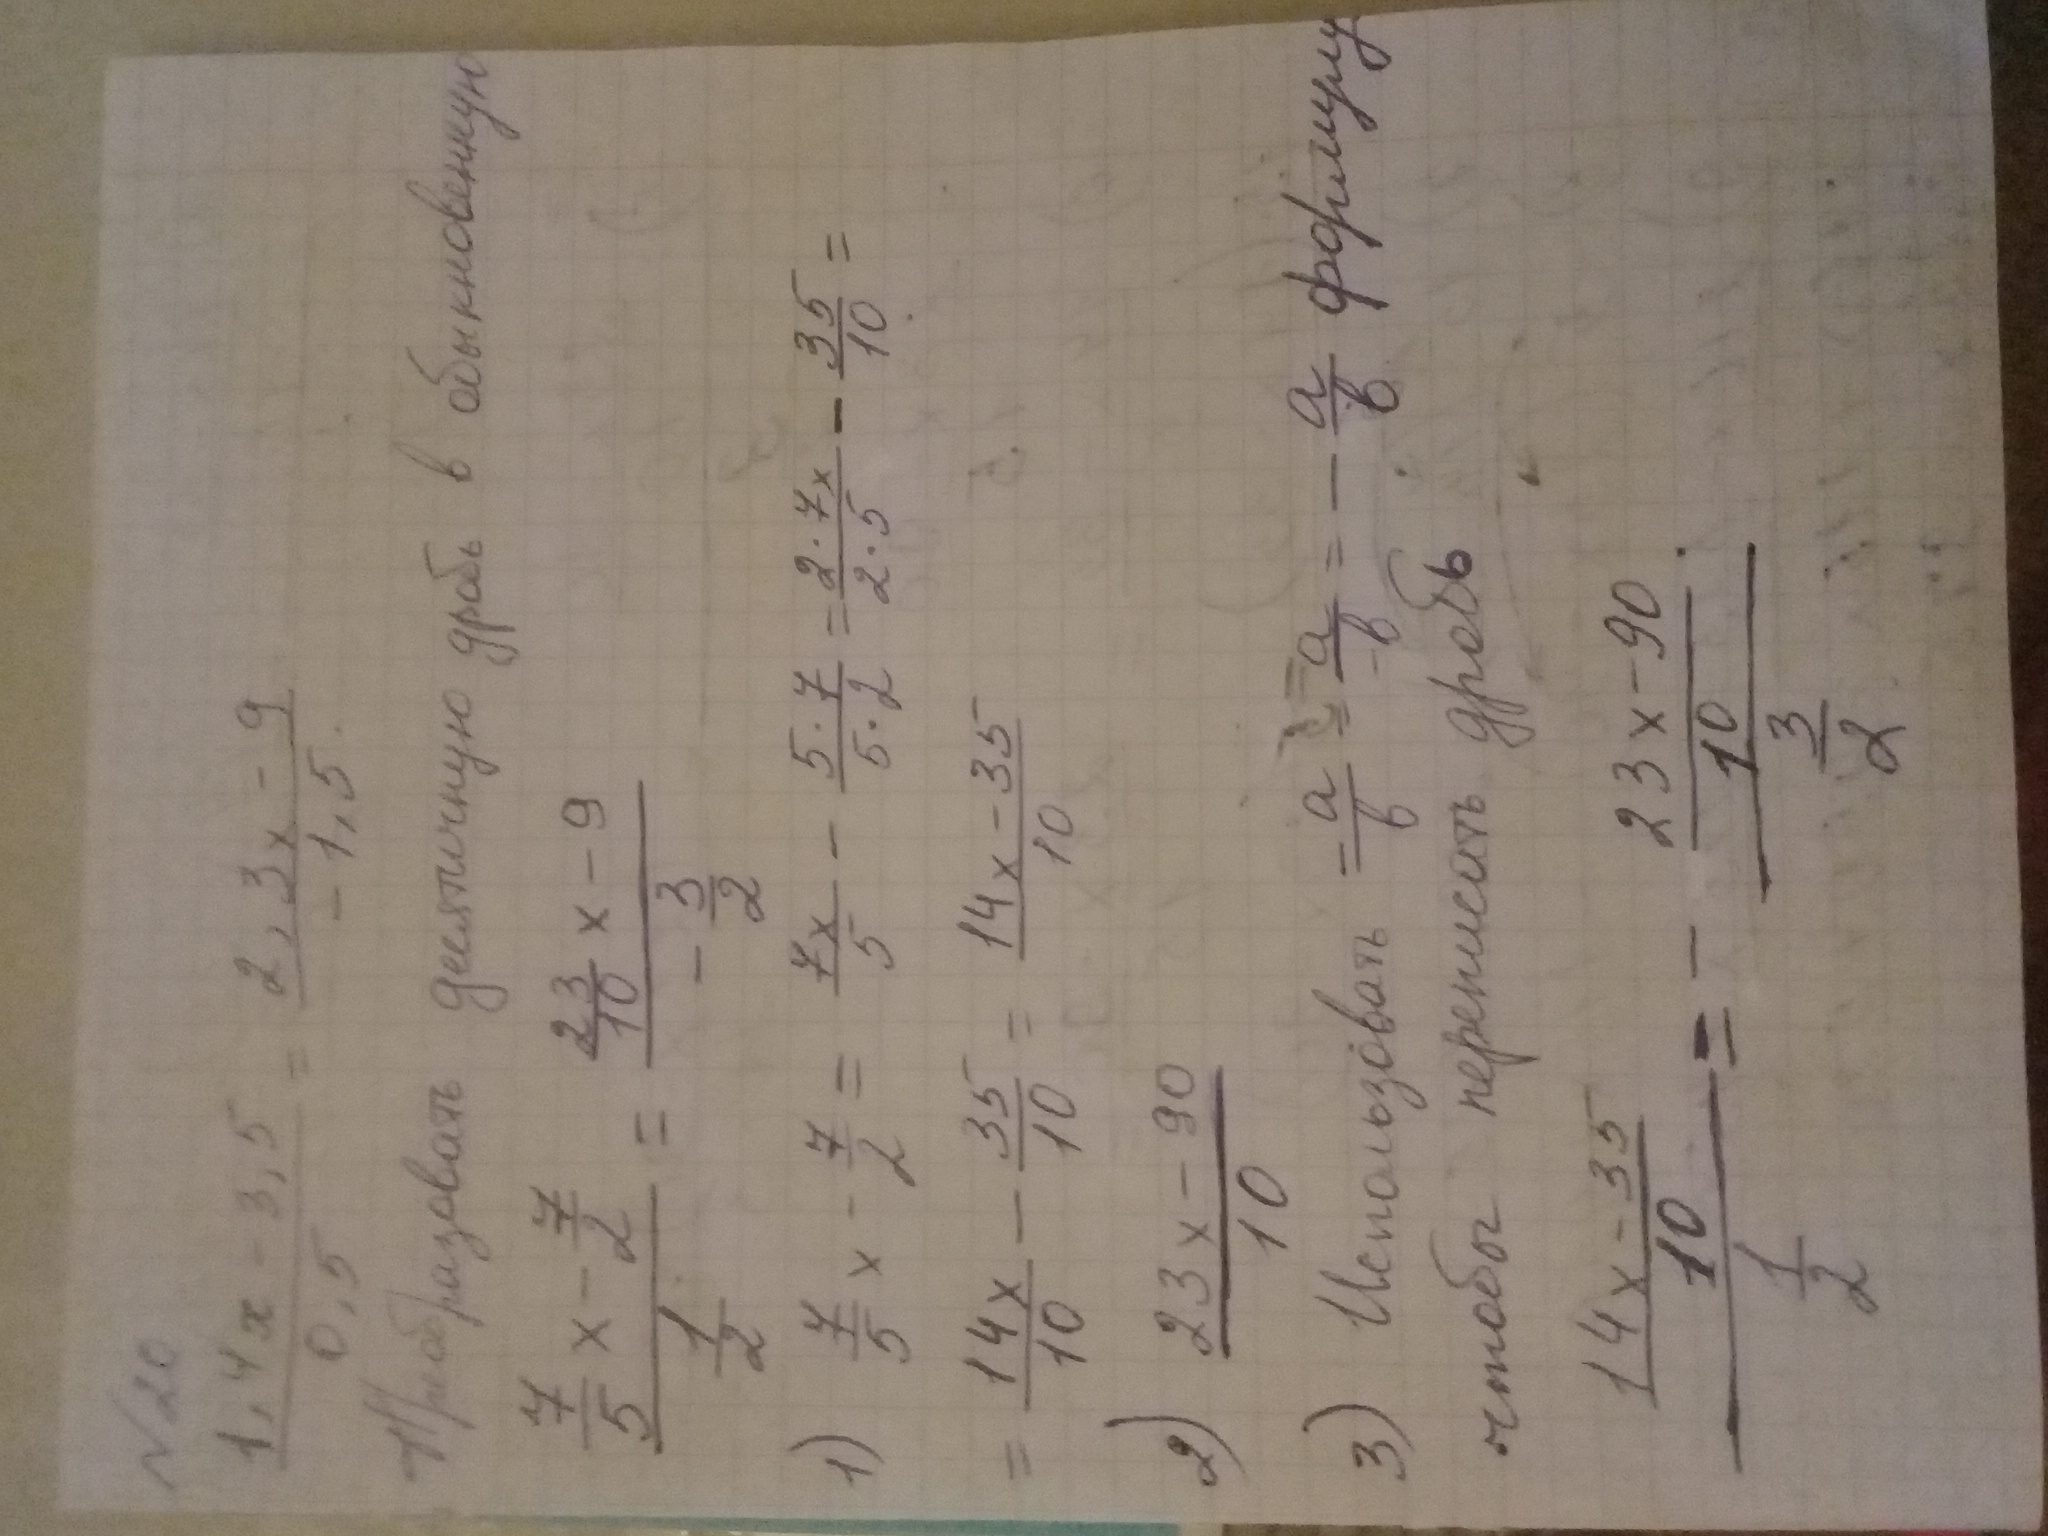 №20
1,4x - 3,5 / 0,5 = 2,3x - 9 / -1,5
Преобразовать десятичную дробь в обыкновенную
7/5 x - 7/2 / 1/2 = 23/10 x - 9 / - 3/2
1) 7/5 x - 7/2 = 7x/5 - 5·7/5·2 = 2·7x/2·5 - 35/10 =
= 14x/10 - 35/10 = 14x - 35/10
2) 23x - 90/10
3) Использовать = a/b = a/-b = - a/b формулу
чтобы переписать дробь
14x - 35/10 / 1/2 = - 23x - 90/10 / 3/2